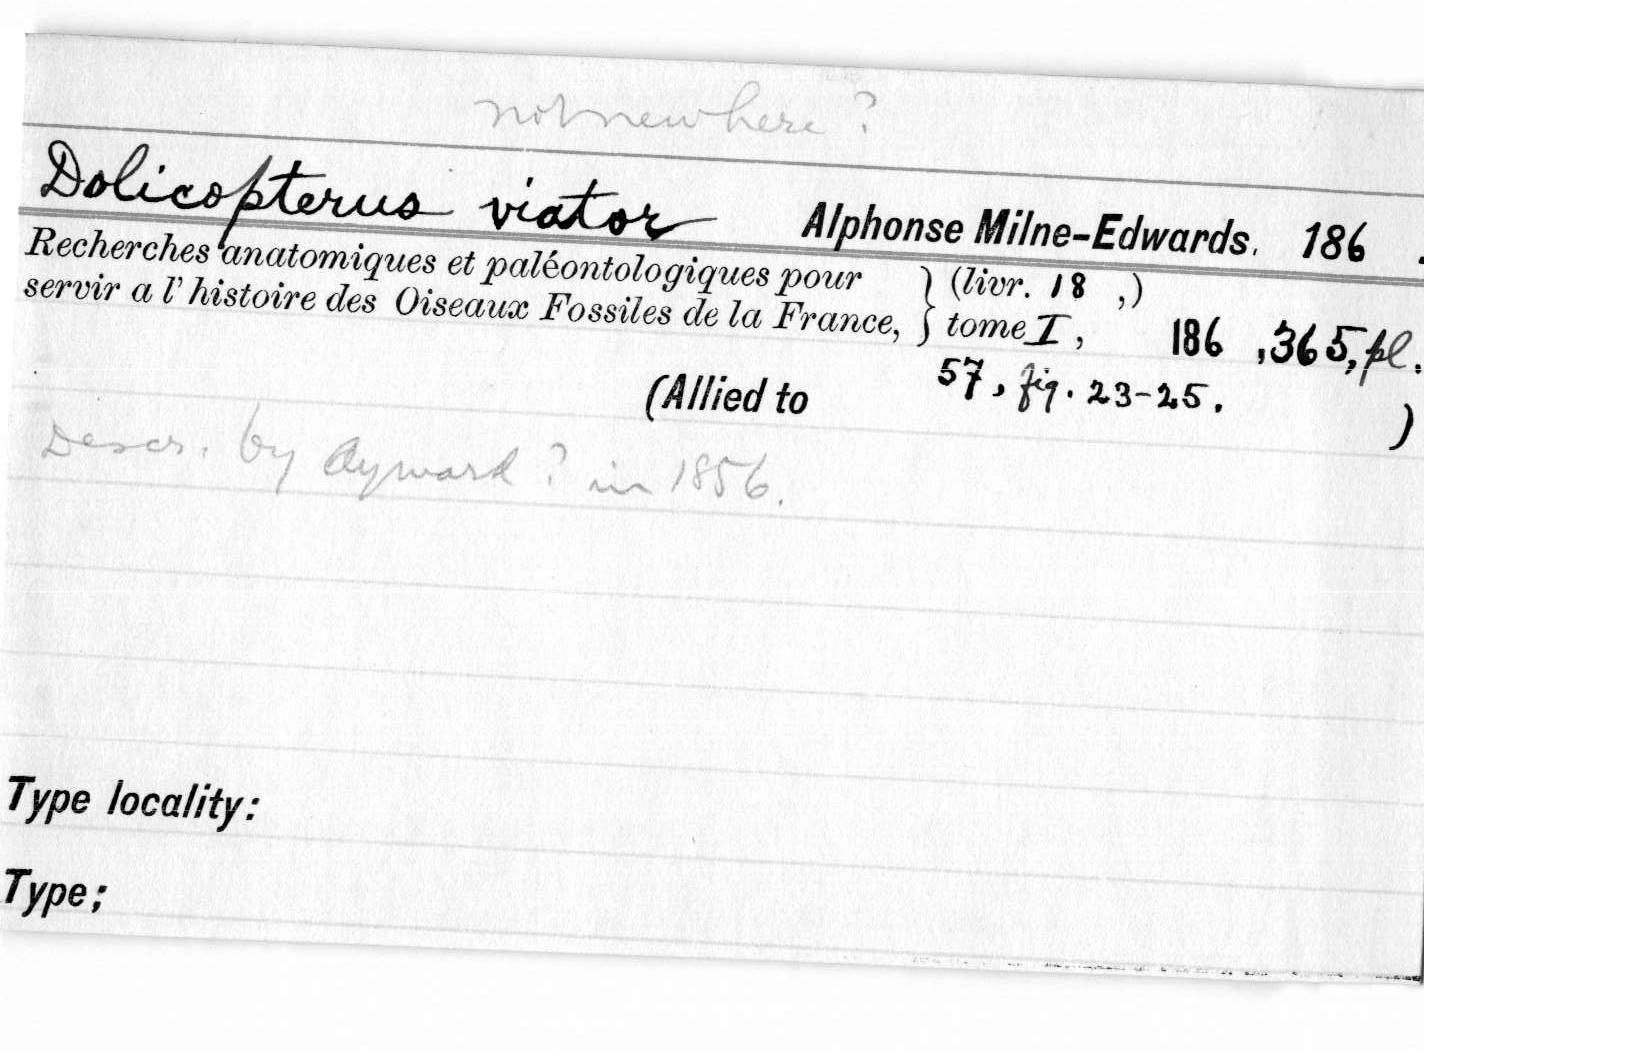 not new here ?
Dolicopterus viator Alphonse Milne-Edwards. 186 .
Recherches anatomiques et paléontologiques pour } (livr. 18 ,)
servir a l' histoire des Oiseaux Fossiles de la France, } tome I , 186 , 365, pl.
57, fig. 23-25.
(Allied to )
Descr. by Aymard ? in 1856.
Type locality:
Type;